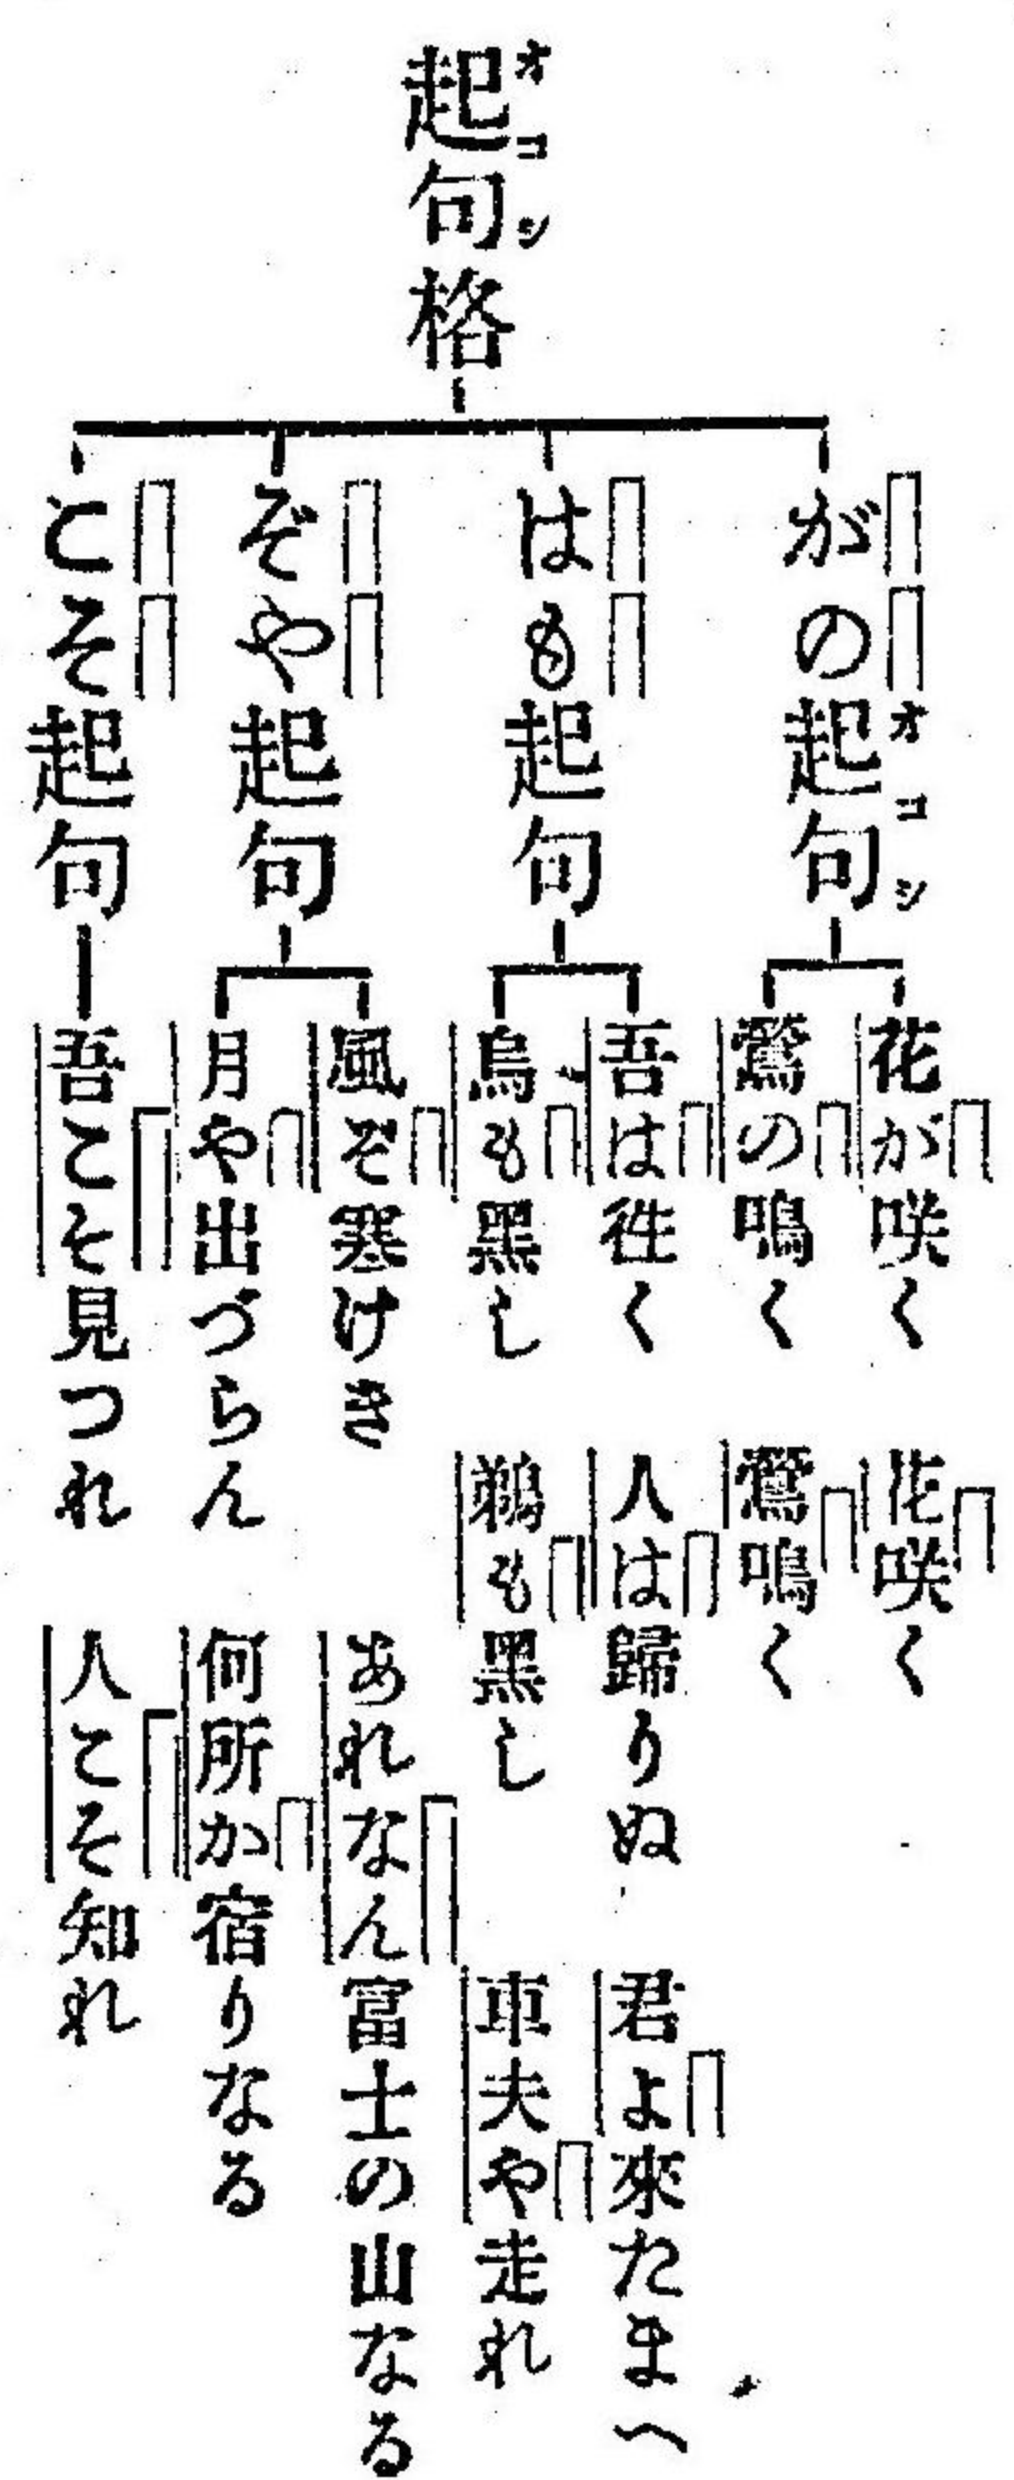 起句格
オコシ
がの起句
オコシ
花が咲く 花咲く
鶯の鳴く 鶯鳴く
はも起句
吾は徃く 人は歸りぬ 君よ來たまへ
烏も黑し 鵜も黑し 車夫や走れ
ぞや起句
風ぞ寒けき あれなん富士の山なる
月や出づらん 何所か宿りなる
こそ起句
吾こそ見つれ 人こそ知れ